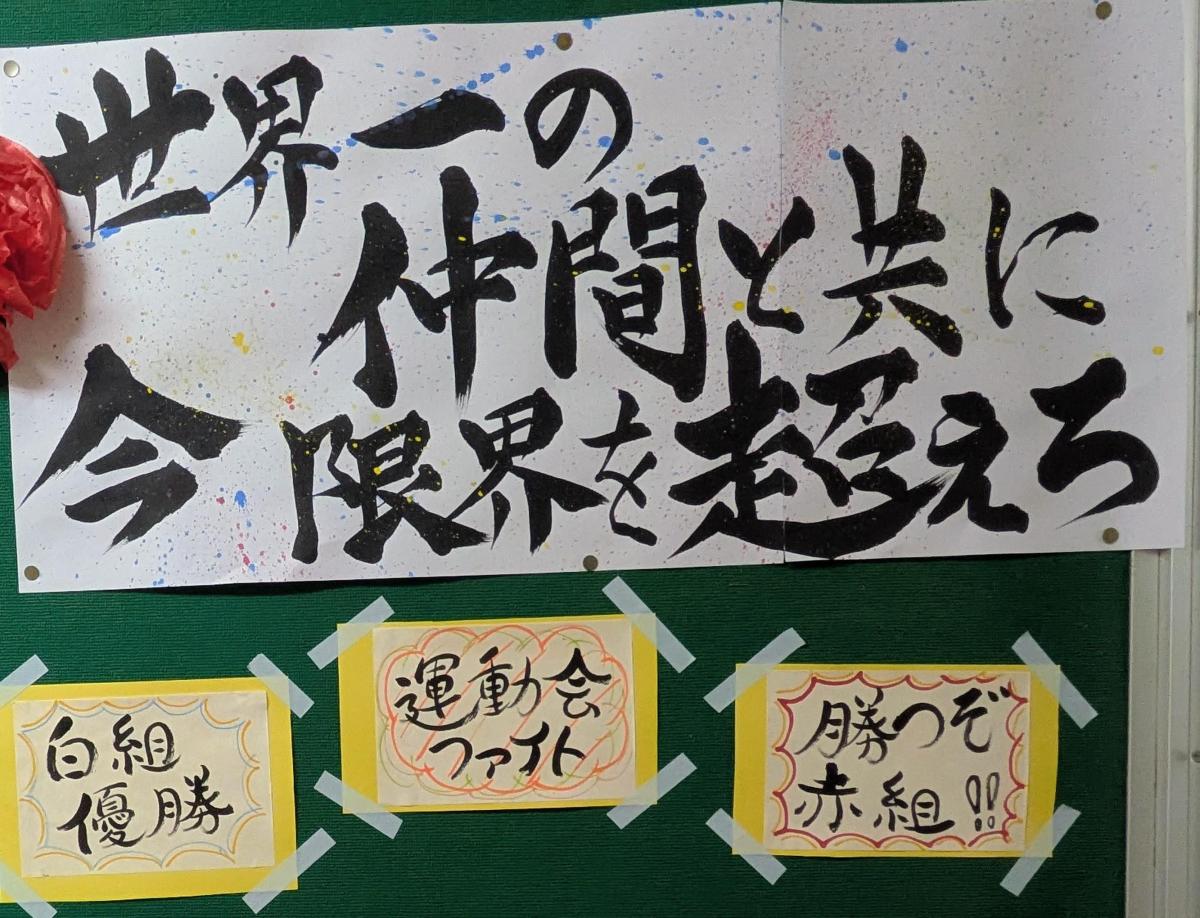 世界一の
仲間と共に
今限界を超えろ
白組
優勝
運動会
ファイト
勝つぞ
赤組!!